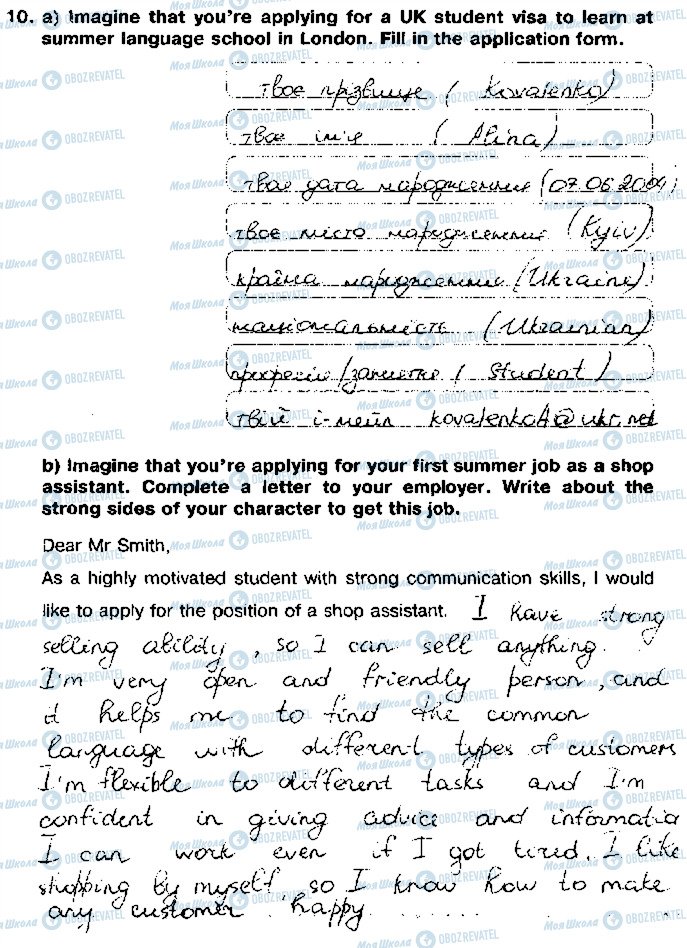 10. a) Imagine that you're applying for a UK student visa to learn at
summer language school in London. Fill in the application form.
твоє прізвище ( Kovalenko)
твоє ім'я ( Alina)
твоя дата народження (07.06.2004)
твоє місто народження (Kyiv)
країна народження (Ukraine)
національність (Ukrainian)
професія/заняття ( student )
твій і-мейл kovalenkoA@ukr.net
b) Imagine that you're applying for your first summer job as a shop
assistant. Complete a letter to your employer. Write about the
strong sides of your character to get this job.
Dear Mr Smith,
As a highly motivated student with strong communication skills, I would
like to apply for the position of a shop assistant. I have strong
selling ability, so I can sell anything.
I'm very open and friendly person, and
it helps me to find the common
language with different types of customers
I'm flexible to different tasks and I'm
confident in giving advice and informatio
I can work even if I got tired. I like
shopping by myself, so I know how to make
any customer happy.
Моя Школа OBOZREVATEL